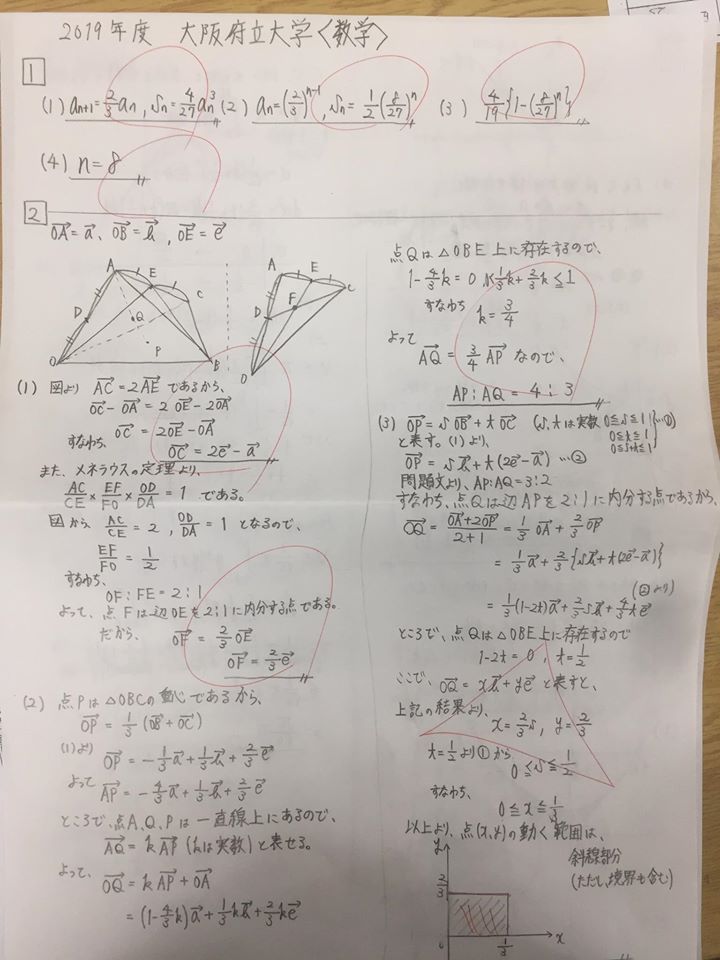 2019年度 大阪府立大学〈数学〉
1
(1) aₙ₊₁=2/3 aₙ, Sₙ=4/27 aₙ³ (2) aₙ=(2/3)ⁿ⁻¹, Sₙ=1/2(8/27)ⁿ (3) 4/19{1-(8/27)ⁿ}
(4) n=8
2
OA→=a→、OB→=b→, OE→=e→
A E C D Q P O B
A E C D F O
(1) 図より AC→=2AE→であるから、
OC→-OA→=2OE→-2OA→
すなわち、OC→=2OE→-OA→
OC→=2e→-a→
また、メネラウスの定理より、
AC/CE×EF/FO×OD/DA=1 である。
図から AC/CE=2, OD/DA=1 となるので、
EF/FO=1/2
すなわち、
OF:FE=2:1
よって、点Fは辺OEを2:1に内分する点である。
だから、OF→=2/3 OE→
OF→=2/3 e→
(2) 点Pは△OBCの重心であるから、
OP→=1/3(OB→+OC→)
(1)より OP→=-1/3 a→+1/3 b→+2/3 e→
よって AP→=-4/3 a→+1/3 b→+2/3 e→
ところで、点A、Q、Pは一直線上にあるので、
AQ→=kAP→(kは実数)と表せる。
よって、OQ→=kAP→+OA→
=(1-4/3k)a→+1/3kb→+2/3ke→
点Qは△OBE上に存在するので、
1-4/3k=0 1/3k+2/3k≦1
すなわち k=3/4
よって
AQ→=3/4 AP→ なので、
AP:AQ=4:3
(3) OP→=sOB→+tOC→ (s,tは実数 0≦s≦1 0≦t≦1 0≦s+t≦1)…①
と表す。(1)より、
OP→=sb→+t(2e→-a→)…②
問題文より、AP:AQ=3:2
すなわち、点Qは辺APを2:1に内分する点であるから、
OQ→=(OA→+2OP→)/(2+1)=1/3 OA→+2/3 OP→
=1/3 a→+2/3{sb→+t(2e→-a→)}
(②より)
=1/3(1-2t)a→+2/3sb→+4/3te→
ところで、点Qは△OBE上に存在するので
1-2t=0, t=1/2
ここで、OQ→=xb→+ye→と表すと、
上記の結果より、
x=2/3s, y=2/3
t=1/2より①から
0≦s≦1/2
すなわち、
0≦x≦1/3
以上より、点(x,y)の動く範囲は、
斜線部分
(ただし、境界も含む)
y
2/3
0 1/3 x